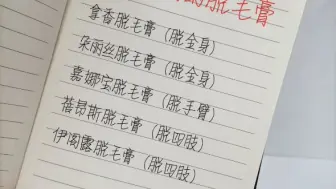 脱毛膏
拿香脱毛膏（脱全身）
朵丽丝脱毛膏（脱全身）
嘉娜宝脱毛膏（脱手臂）
蓓昂斯脱毛膏（脱四肢）
伊阁露脱毛膏（脱四肢）